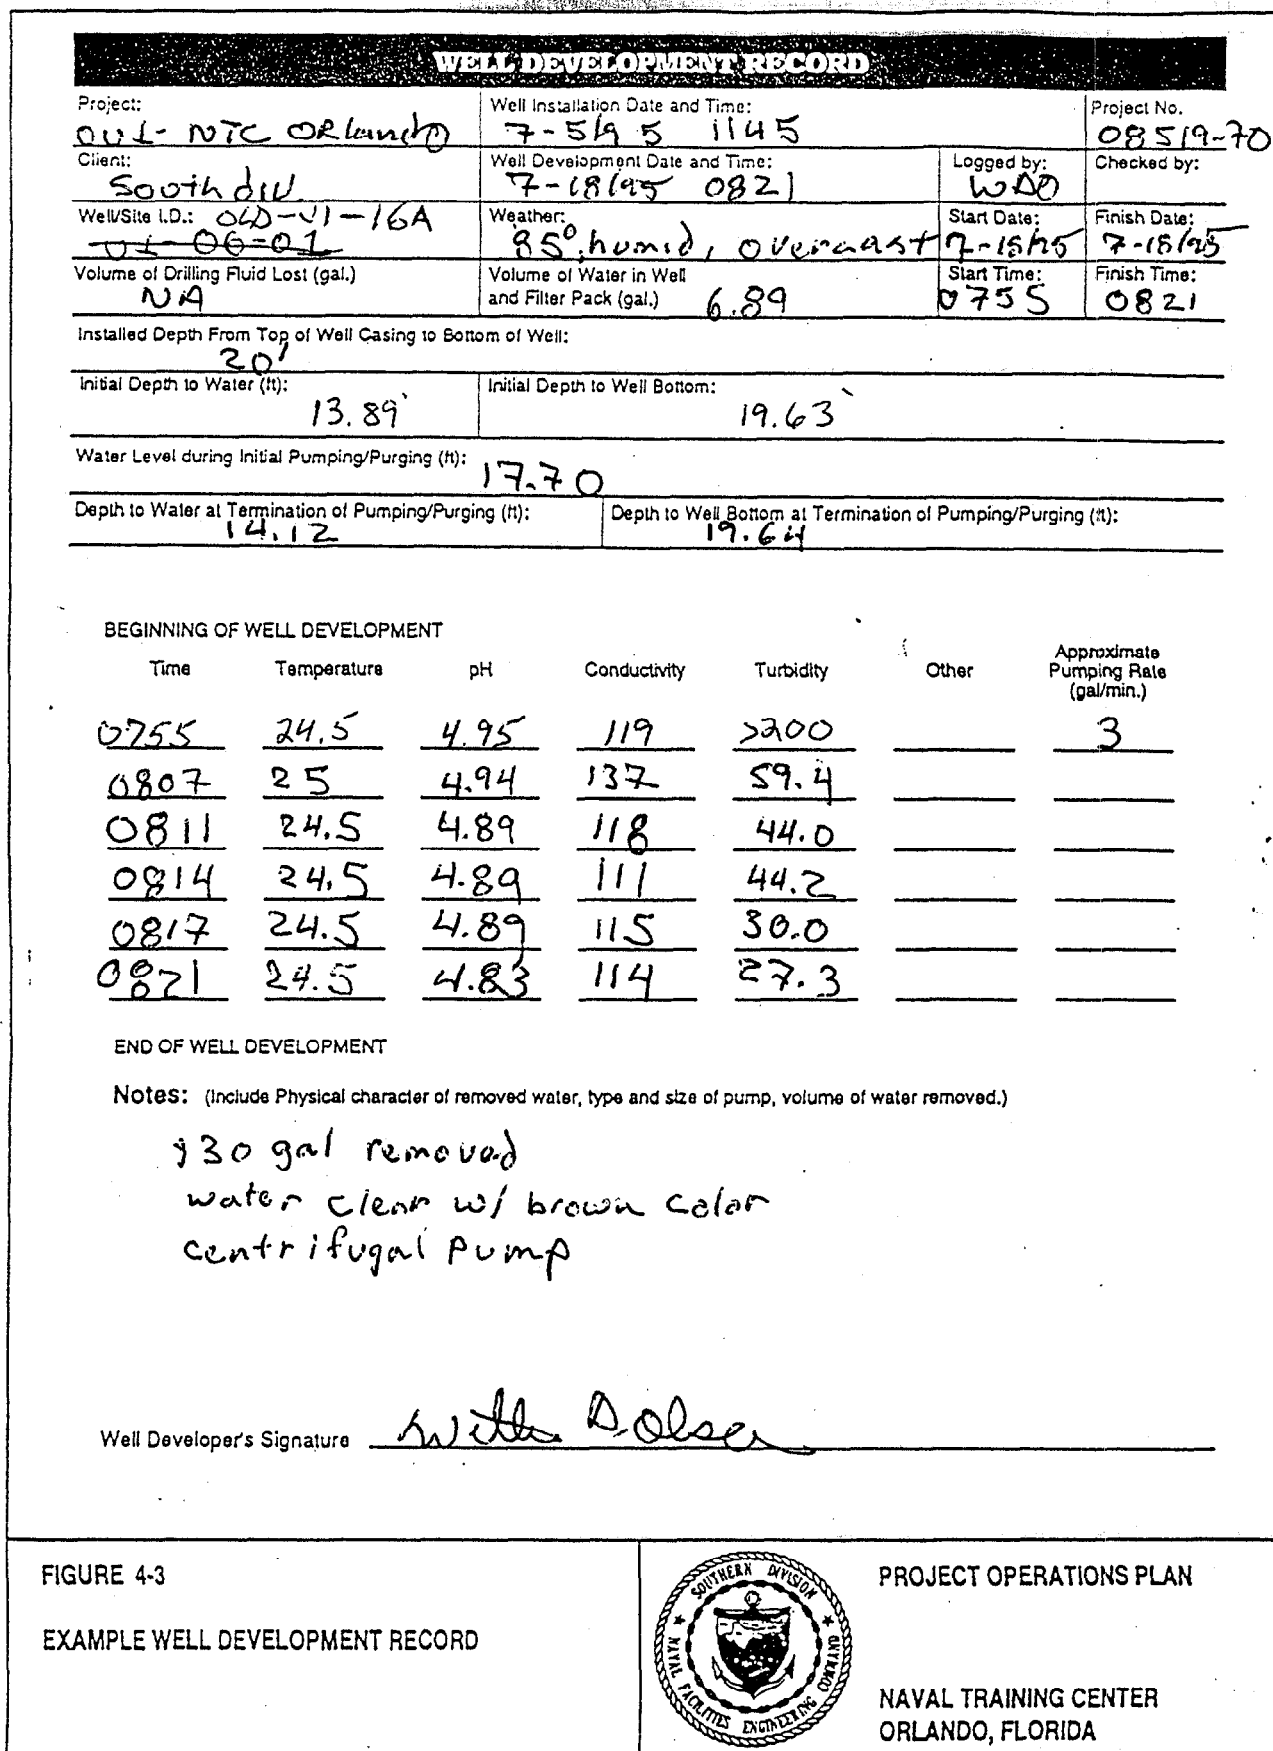 WELL DEVELOPMENT RECORD
Project: Well Installation Date and Time: Project No.
OU1- NTC ORlando 7-5/95 1145 08519-70
Client: Well Development Date and Time: Logged by: Checked by:
South div 7-18/95 0821 WDO
Well/Site I.D.: OLD-U1-16A Weather: Start Date: Finish Date:
U1-06-01 85° humid, overcast 7-18/95 7-18/95
Volume of Drilling Fluid Lost (gal.) Volume of Water in Well Start Time: Finish Time:
NA and Filter Pack (gal.) 6.89 0755 0821
Installed Depth From Top of Well Casing to Bottom of Well:
20'
Initial Depth to Water (ft): Initial Depth to Well Bottom:
13.89' 19.63'
Water Level during Initial Pumping/Purging (ft): 17.70
Depth to Water at Termination of Pumping/Purging (ft): Depth to Well Bottom at Termination of Pumping/Purging (ft):
14.12 19.64
BEGINNING OF WELL DEVELOPMENT
Time Temperature pH Conductivity Turbidity Other Approximate Pumping Rate (gal/min.)
0755 24.5 4.95 119 >200 3
0807 25 4.94 137 59.4
0811 24.5 4.89 118 44.0
0814 24.5 4.89 111 44.2
0817 24.5 4.89 115 30.0
0821 24.5 4.83 114 27.3
END OF WELL DEVELOPMENT
Notes: (Include Physical character of removed water, type and size of pump, volume of water removed.)
30 gal removed
water clear w/ brown color
centrifugal pump
Well Developer's Signature D. Olsen
FIGURE 4-3
EXAMPLE WELL DEVELOPMENT RECORD
SOUTHERN DIVISION
NAVAL FACILITIES ENGINEERING COMMAND
PROJECT OPERATIONS PLAN
NAVAL TRAINING CENTER
ORLANDO, FLORIDA